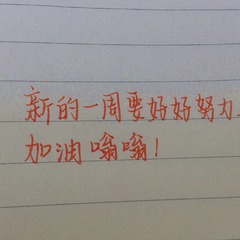 新的一周要好好努力,
加油嗡嗡!